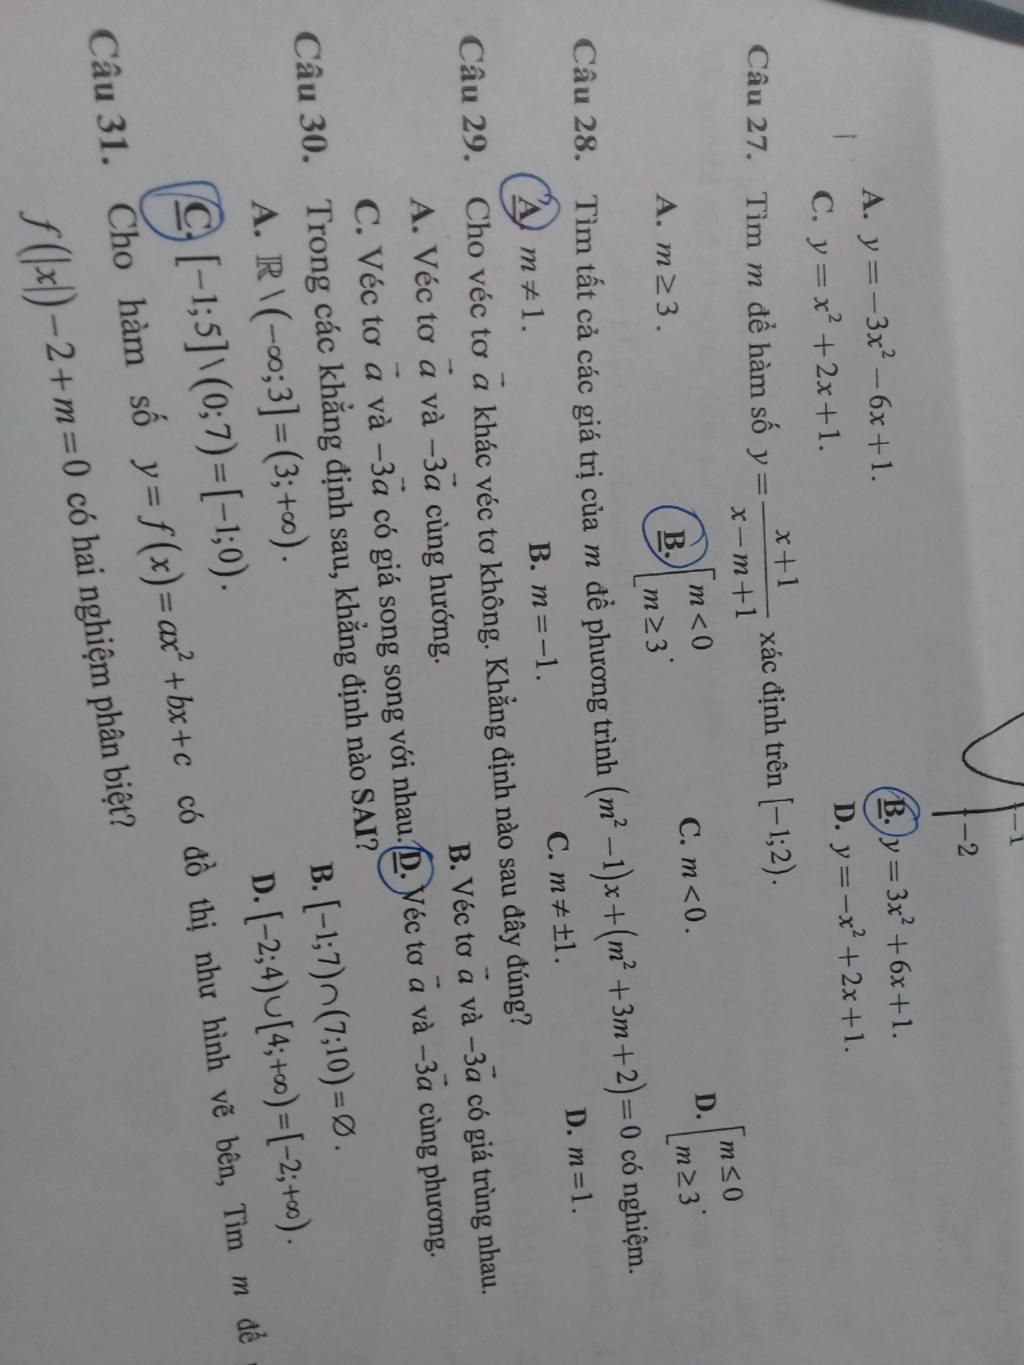 -1
-2
A. y = -3x² - 6x + 1.
B. y = 3x² + 6x + 1.
C. y = x² + 2x + 1.
D. y = -x² + 2x + 1.
Câu 27. Tìm m để hàm số y = (x+1)/(x-m+1) xác định trên [-1;2).
A. m ≥ 3.
B. [m < 0 [m ≥ 3.
C. m < 0.
D. [m ≤ 0 [m ≥ 3.
Câu 28. Tìm tất cả các giá trị của m để phương trình (m² - 1)x + (m² + 3m + 2) = 0 có nghiệm.
A. m ≠ 1.
B. m = -1.
C. m ≠ ±1.
D. m = 1.
Câu 29. Cho véc tơ a⃗ khác véc tơ không. Khẳng định nào sau đây đúng?
A. Véc tơ a⃗ và -3a⃗ cùng hướng.
B. Véc tơ a⃗ và -3a⃗ có giá trùng nhau.
C. Véc tơ a⃗ và -3a⃗ có giá song song với nhau.
D. Véc tơ a⃗ và -3a⃗ cùng phương.
Câu 30. Trong các khẳng định sau, khẳng định nào SAI?
A. ℝ\(-∞;3] = (3;+∞).
B. [-1;7)∩(7;10) = ∅.
C. [-1;5]\(0;7) = [-1;0).
D. [-2;4)∪[4;+∞) = [-2;+∞).
Câu 31. Cho hàm số y = f(x) = ax² + bx + c có đồ thị như hình vẽ bên, Tìm m để
f(|x|) - 2 + m = 0 có hai nghiệm phân biệt?